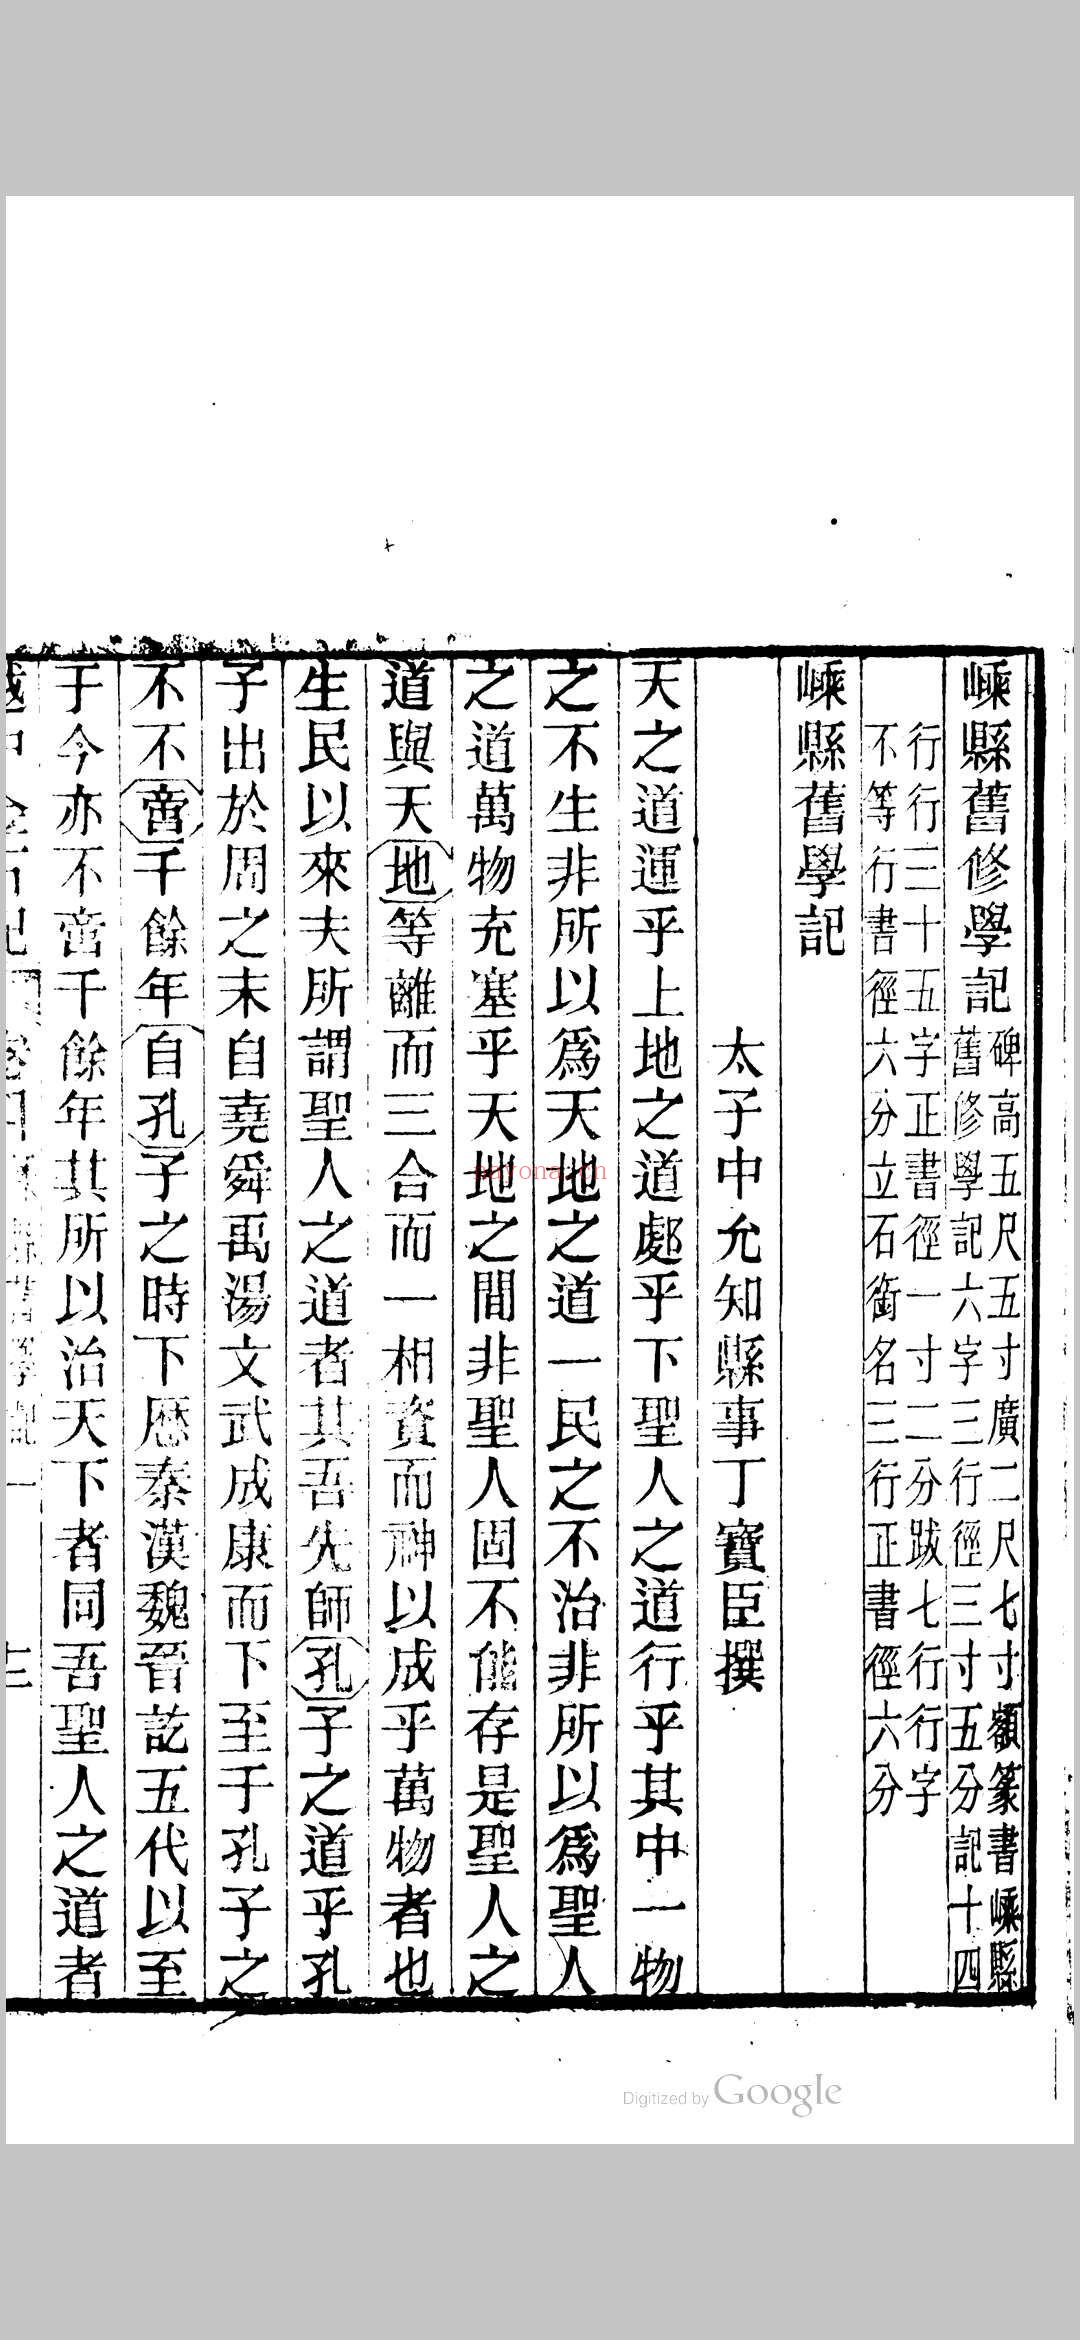 嵊縣舊修學記
碑高五尺五寸廣二尺七寸額篆書嵊縣
舊修學記六字三行徑三寸五分記十四
行行三十五字正書徑一寸二分跋七行行字
不等行書徑六分立石銜名三行正書徑六分
嵊縣舊學記
太子中允知縣事丁寶臣撰
天之道運乎上地之道處乎下聖人之道行乎其中一物
之不生非所以爲天地之道一民之不治非所以爲聖人
之道萬物充塞乎天地之間非聖人固不能存是聖人之
道與天地等離而三合而一相資而神以成乎萬物者也
生民以來夫所謂聖人之道者其吾先師孔子之道乎孔
子出於周之末自堯舜禹湯文武成康而下至于孔子之
不不啻千餘年自孔子之時下歷秦漢魏晉訖五代以至
于今亦不啻千餘年其所以治天下者同吾聖人之道者
nayona.cn
Digitized by Google